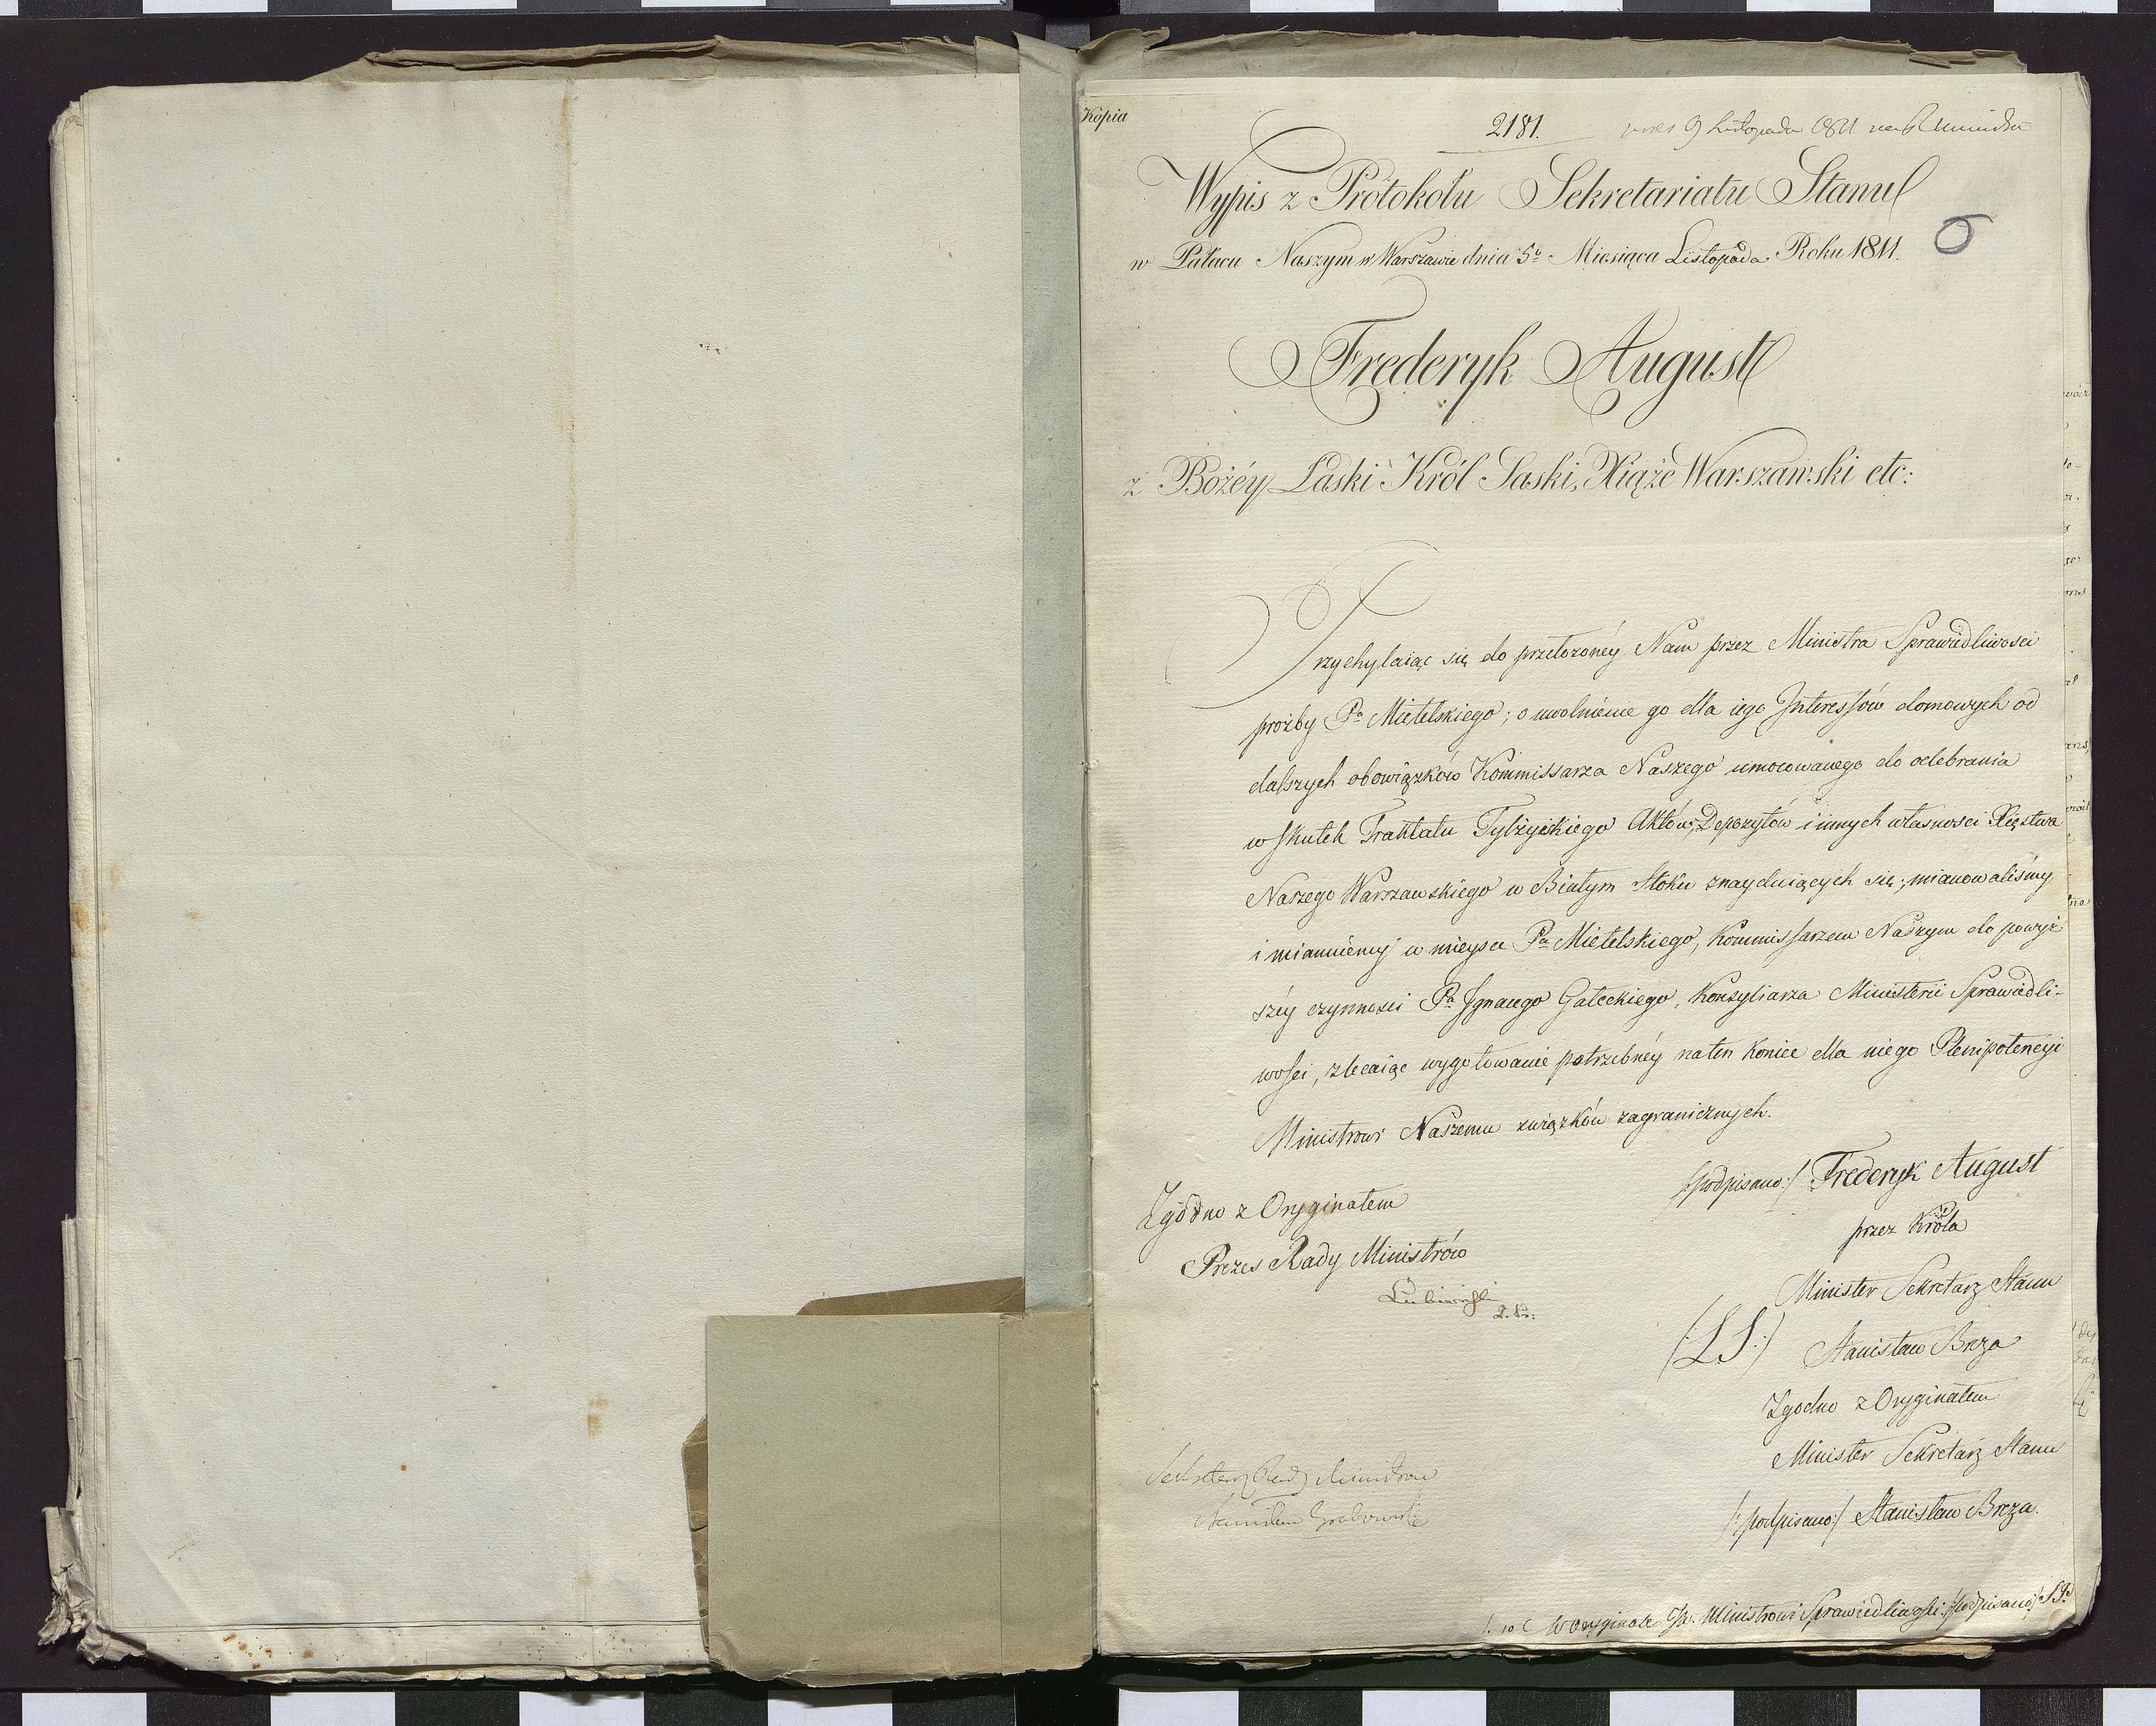 Kopia
2181.
9 Listopada 1811
Wypis z Protokołu Sekretariatu Stanu
w Pałacu Naszym w Warszawie dnia 5º Miesiąca Listopada Roku 1811.
Frederyk August
z Bożéy Łaski Król Saski, Xiąże Warszawski etc:
Przychylaiąc się do przełożonéy Nam przez Ministra Sprawiedliwości
prożby Pª Mielelskiego; o uwolnienie go dla iego Interessów domowych od
dalszych obowiązków Kommissarza Naszego umocowanego do odebrania
w skutek Traktatu Tylżyckiego Aktów, Depozytów i innych własnosci Xięstwa
Naszego Warszawskiego w Białym Stoku znayduiących się; mianowaliśmy
i mianuiemy w mieysce Pª Mielelskiego, Kommissarzem Naszym do powyż
széy czynności Pª Ignacego Gałeckiego, Konsyliarza Ministerii Sprawiedli-
wości, zlecaiąc wygotowanie potrzebnéy na ten koniec dla niego Plenipotencyi
Ministrowi Naszemu związków zagranicznych.
/:podpisano:/ Frederyk August
przez Króla
Minister Sekretarz Stanu
(:LS:) Stanisław Breza
Zgodno z Oryginałem
Minister Sekretarz Stanu
/:podpisano:/ Stanisław Breza.
Zgodno z Oryginałem
Prezes Rady Ministrów
Lubieński
Sekretarz Rady Ministrów
Stanisław Grabowski
W oryginale JW. Ministrowi Sprawiedliwości /:podpisano:/